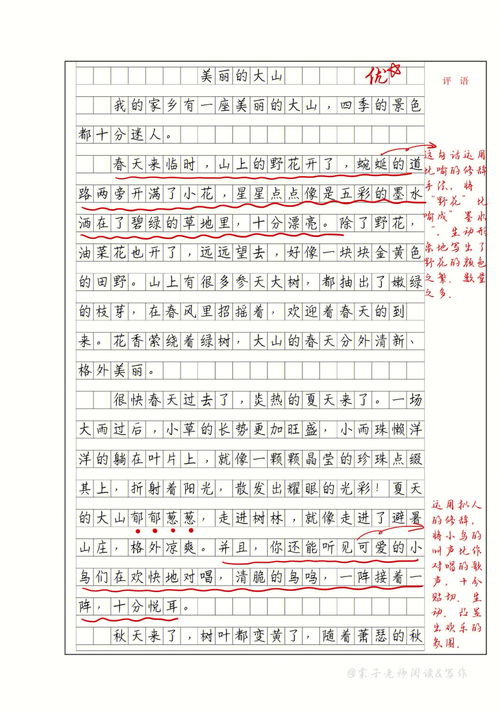 美丽的大山
优
评语
我的家乡有一座美丽的大山，四季的景色
都十分迷人。
春天来临时，山上的野花开了，蜿蜒的道
路两旁开满了小花，星星点点像是五彩的墨水
洒在了碧绿的草地里，十分漂亮。除了野花，
油菜花也开了，远远望去，好像一块块金黄色
的田野。山上有很多参天大树，都抽出了嫩绿
的枝芽，在春风里招摇着，欢迎着春天的到
来。花香萦绕着绿树，大山的春天分外清新、
格外美丽。
很快春天过去了，炎热的夏天来了。一场
大雨过后，小草的长势更加旺盛，小雨珠懒洋
洋的躺在叶片上，就像一颗颗晶莹的珍珠点缀
其上，折射着阳光，散发出耀眼的光彩！夏天
的大山郁郁葱葱，走进树林，就像走进了避暑
山庄，格外凉爽。并且，你还能听见可爱的小
鸟们在欢快地对唱，清脆的鸟鸣，一阵接着一
阵，十分悦耳。
秋天来了，树叶都变黄了，随着萧瑟的秋
这句话运用
比喻的修辞
手法，将
"野花"比
喻成"墨水
"，生动形
象地写出了
野花的颜色
之繁、数量
之多。
运用拟人
的修辞，
将小鸟的
叫声比作
对唱的歌
声，十分
贴切、生
动，凸显
出欢乐的
氛围。
老师阅读&写作